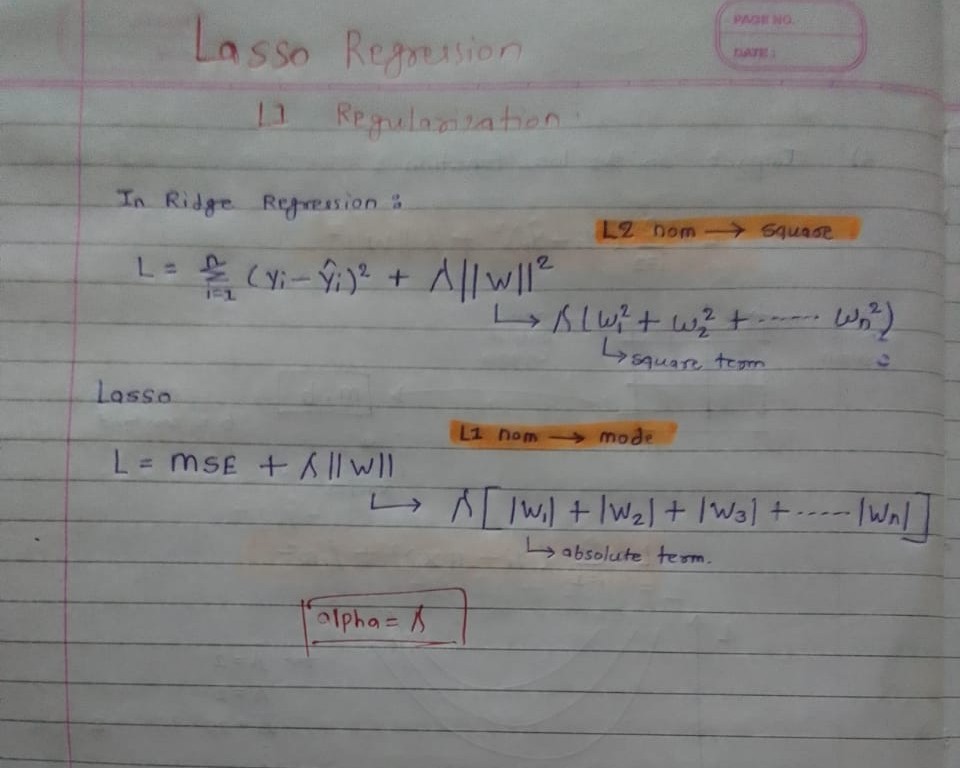 PAGE NO.
DATE:
Lasso Regression
L1 Regularization
In Ridge Regression :
L2 nom → square
L = Σ_{i=1}^{n} (yi - ŷi)² + λ||W||²
↳ λ(w₁² + w₂² + ...... wn²)
↳ square term
Lasso
L1 nom → mode
L = MSE + λ||W||
↳ λ[|W₁| + |W₂| + |W₃| + ..... |Wn|]
↳ absolute term.
alpha = λ